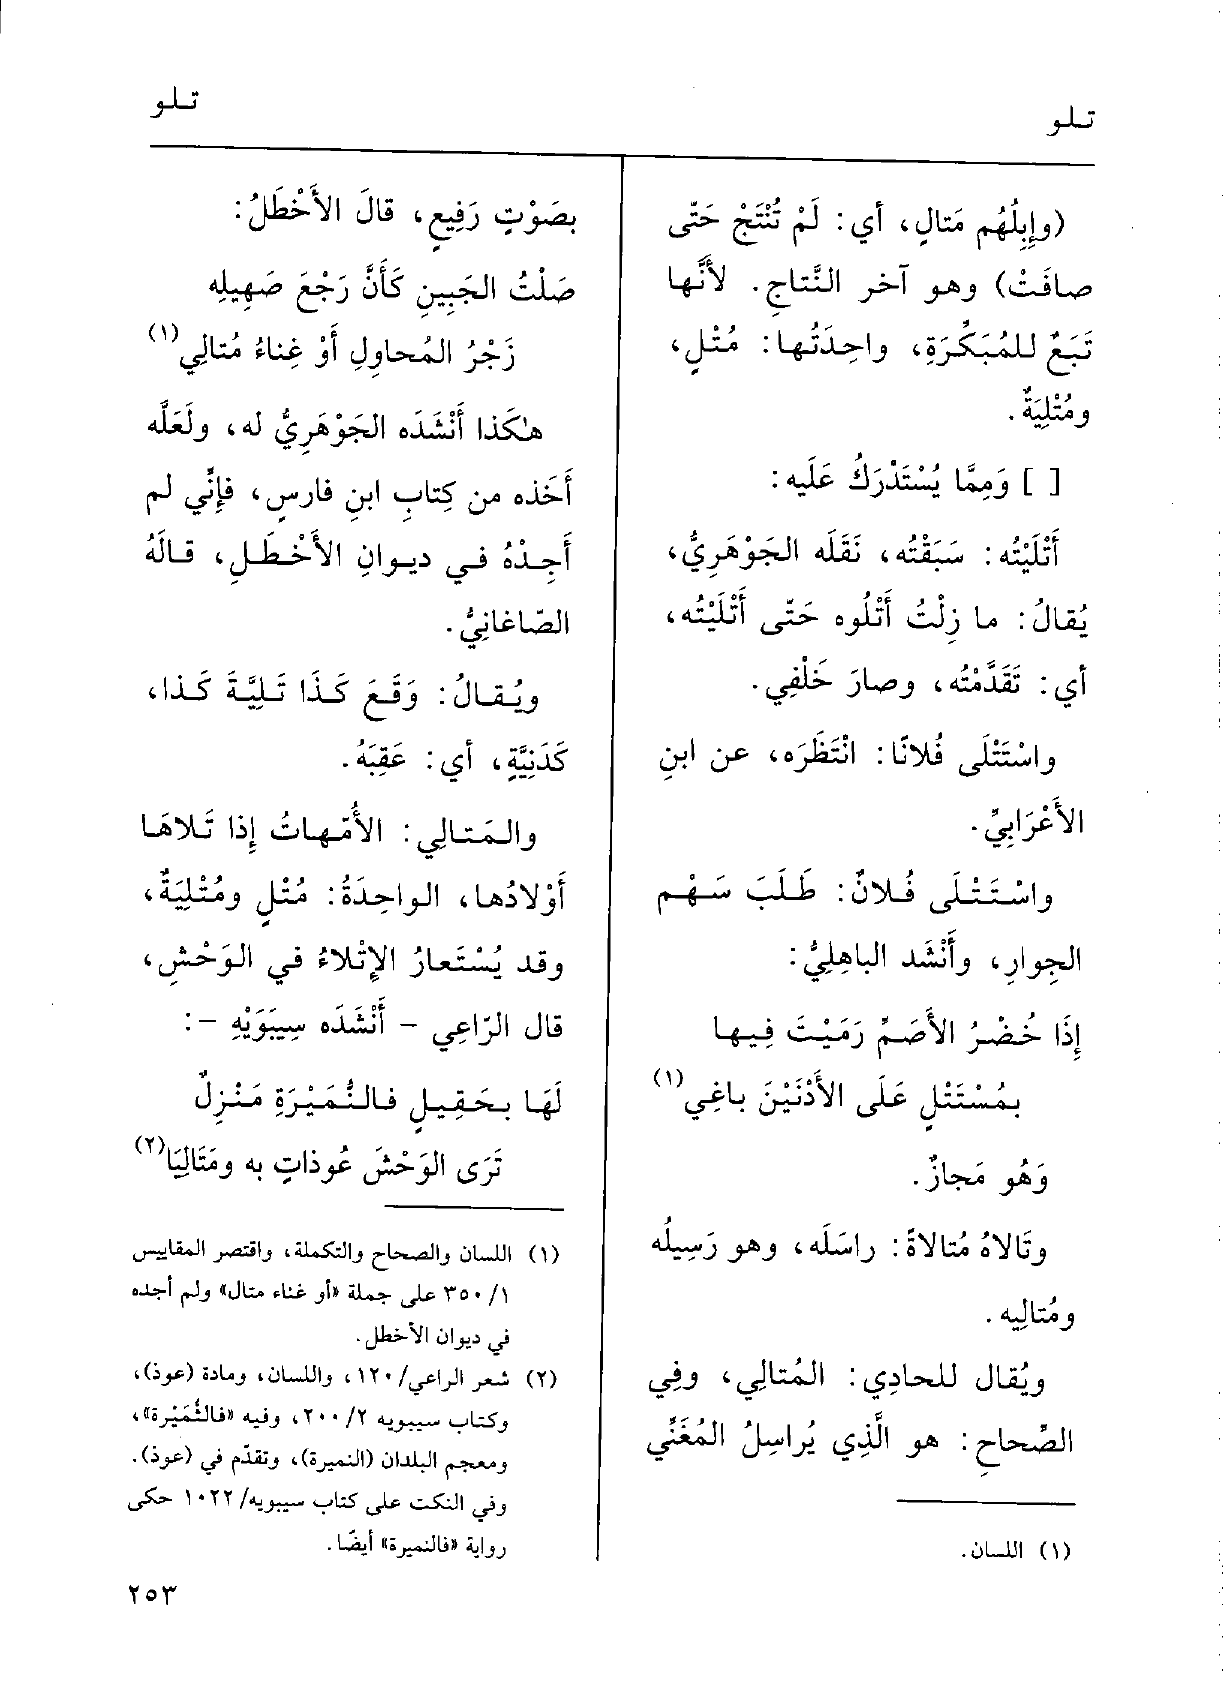 تلو
تلو
(وإِبِلُهُم مَتالٍ، أي: لَمْ تُنْتَجْ حَتّى
صافَتْ) وهو آخر النَّتاجِ. لأَنَّها
تَبَعٌ للمُبَكِّرَةِ، واحِدَتُها: مُتْلٍ،
ومُتْلِيَةٌ.
[ ] وَمِمَّا يُسْتَدْرَكُ عَلَيه:
أَتْلَيْتُه: سَبَقْتُه، نَقَلَه الجَوْهَرِيُّ،
يُقالُ: ما زِلْتُ أَتْلُوه حَتّى أَتْلَيْتُه،
أي: تَقَدَّمْتُه، وصارَ خَلْفِي.
واسْتَتْلَى فُلانًا: انْتَظَرَه، عن ابنِ
الأَعْرَابِيِّ.
واسْتَتْلَى فُلانٌ: طَلَبَ سَهْم
الجِوارِ، وأَنْشَد الباهِلِيُّ:
إِذَا خُضْرُ الأَصَمِّ رَمَيْتَ فِيها
بمُسْتَتْلٍ عَلَى الأَدْنَيْنَ باغِي(١)
وَهُو مَجازٌ.
وتَالاهُ مُتالاةً: راسَلَه، وهو رَسِيلُه
ومُتالِيه.
ويُقال للحادِي: المُتالِي، وفِي
الصِّحاحِ: هو الَّذِي يُراسِلُ المُغَنِّي
(١) اللسان.
بصَوْتٍ رَفِيعٍ، قالَ الأَخْطَلُ:
صَلْتُ الجَبِينِ كَأَنَّ رَجْعَ صَهِيلِه
زَجْرُ المُحاوِلِ أَوْ غِناءُ مُتالِي(١)
هٰكَذا أَنْشَدَه الجَوْهَرِيُّ له، ولَعَلَّه
أَخَذه من كِتابِ ابنِ فارِسٍ، فإِنِّي لم
أَجِدْهُ في ديوانِ الأَخْطَلِ، قالَهُ
الصّاغانِيُّ.
ويُقالُ: وَقَعَ كَذَا تَلِيَّةَ كَذا،
كَدَنِيَّةٍ، أي: عَقِبَهُ.
والمَتالِي: الأُمّهاتُ إِذا تَلاهَا
أَوْلادُها، الواحِدَةُ: مُتْلٍ ومُتْلِيَةٌ،
وقد يُسْتَعارُ الإِتْلاءُ في الوَحْشِ،
قال الرّاعِي - أَنْشَدَه سِيبَوَيْهِ -:
لَهَا بحَقِيلٍ فالنُّمَيْرَةِ مَنْزِلٌ
تَرَى الوَحْشَ عُوذاتٍ به ومَتَالِيَا(٢)
(١) اللسان والصحاح والتكملة، واقتصر المقاييس
١/ ٣٥٠ على جملة «أو غناء متال» ولم أجده
في ديوان الأخطل.
(٢) شعر الراعي/١٢٠، واللسان، ومادة (عوذ)،
وكتاب سيبويه ٢/ ٢٠٠، وفيه «فالثُمَيْرة»،
ومعجم البلدان (النميرة)، وتقدّم في (عوذ).
وفي النكت على كتاب سيبويه/ ١٠٢٢ حكى
رواية «فالنميرة» أيضًا.
٢٥٣